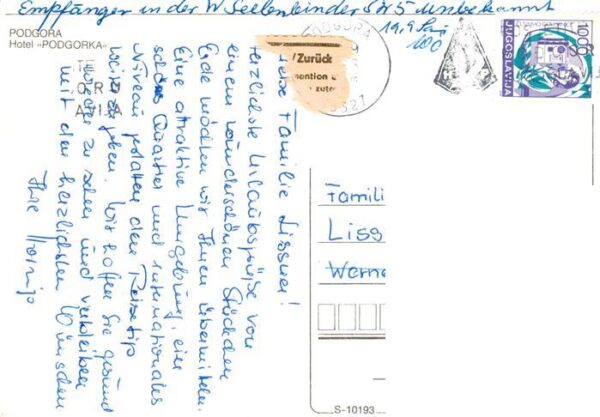 Empfänger in der W Seelenbinder Str 5 unbekannt
19.9
PODGORA
Hotel »PODGORKA«
Zurück
mention
10.00
JUGOSLAVIJA
Liebe Familie Lissner!
Herzlichste Urlaubsgrüße von
einem wunderschönen Stückchen
Erde möchten wir Ihnen übermitteln.
Eine attraktive Umgebung, ein
Quartier und internationales
Niveau den Reisetip
weitergeben. Wir hoffen Sie gesund
wieder zu sehen und verbleiben
mit den herzlichsten Wünschen
Ihre
Famili
Liss
Werne
S-10193